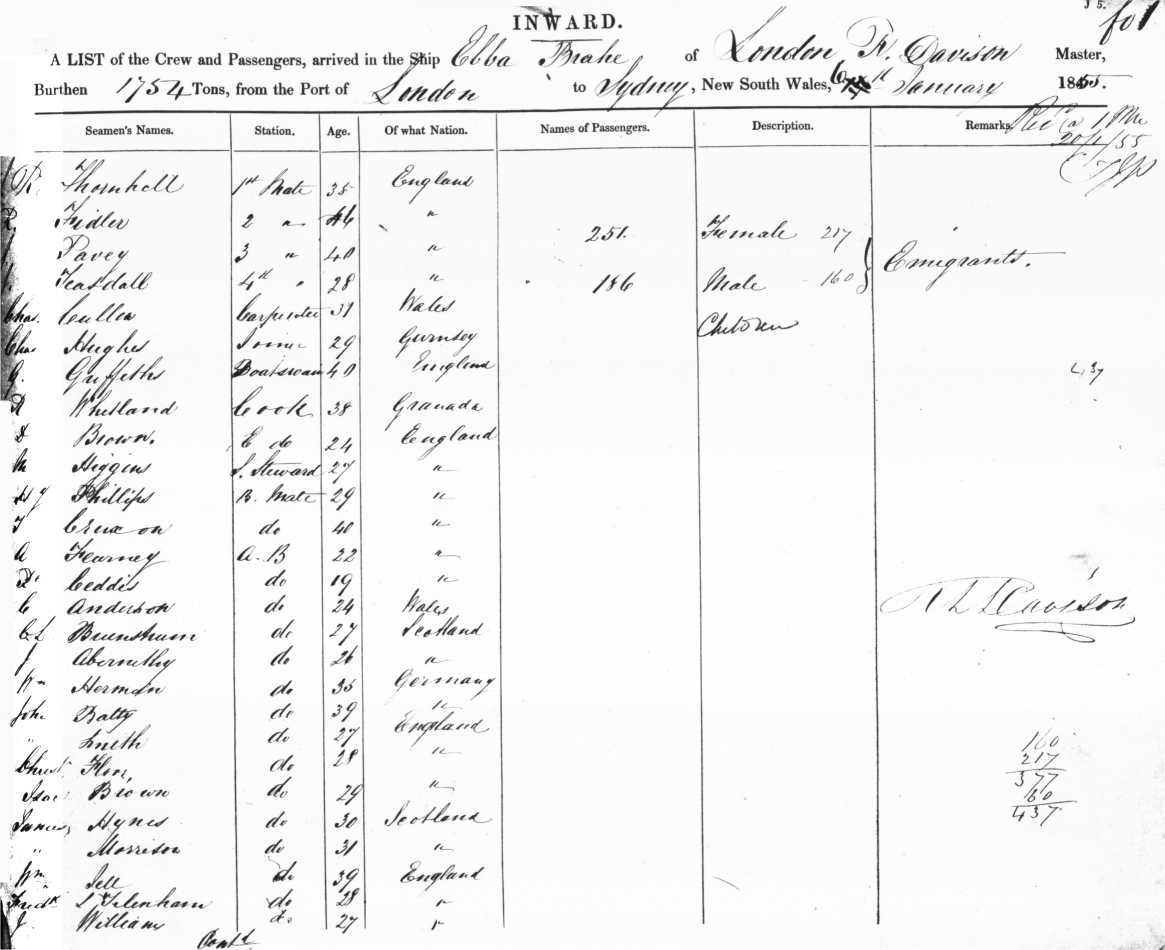 J 5.
fo 1
INWARD.
A LIST of the Crew and Passengers, arrived in the Ship Ebba Brahe of London R. Davison Master,
Burthen 1754 Tons, from the Port of London to Sydney, New South Wales, 6 January 1855.
Seamen's Names. Station. Age. Of what Nation. Names of Passengers. Description. Remarks.
20/1/55
R. Thornhill 1st Mate 35 England
Fidler 2 " 46 "
251 Female 217
Pavey 3 " 40 "
Emigrants.
Teasdall 4th " 28 "
186 Male 160
Chas. Cullen Carpenter 31 Wales
Children
Chas Hughes Joiner 29 Gurnsey
G. Griffeths Boatswain 40 England
437
R Whitland Cook 38 Granada
D Brown. E do 24 England
M Higgins S. Steward 27 "
Hy Phillips B. Mate 29 "
T Cruxon do 40 "
A Fearney A. B 22 "
Ceddis do 19 "
C Anderson do 24 Wales
R L Davison
do 27 Scotland
J Abernethy do 26 "
Wm Herman do 35 Germany
John Batty do 39 "
" Smith do 27 England
Christ. do 28 "
160
217
377
60
437
Isac Brown do 29 "
James Hynes do 30 Scotland
" Morrison do 31 "
Wm Jell do 39 England
Fredk do 28 "
J. William do 27 "
Contd